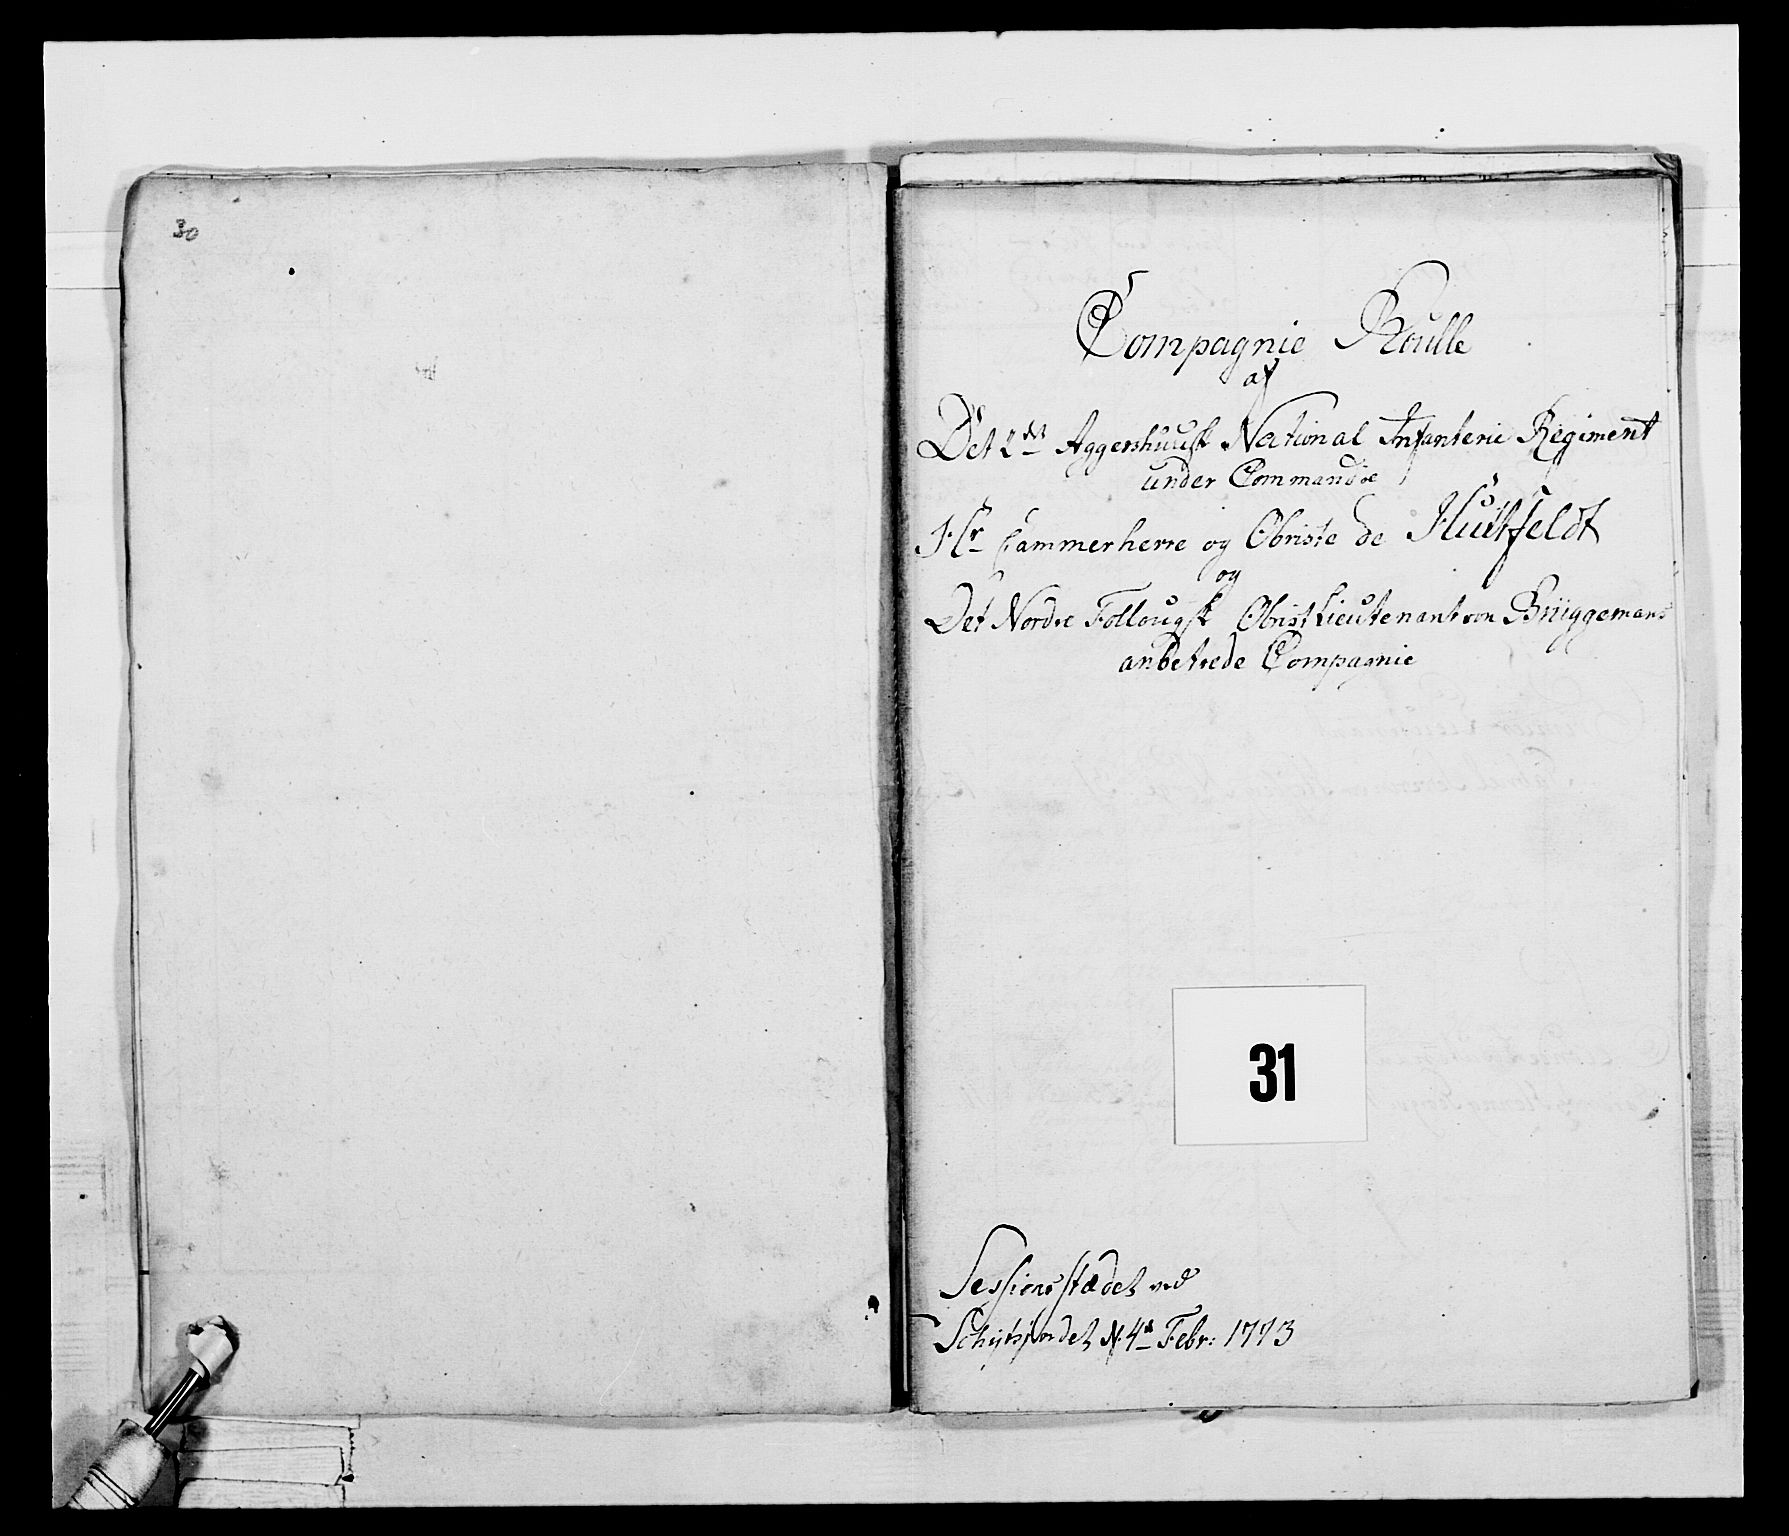 30
Compagnie Roulle
af
Det 2det Aggershuusk National Infanterie Regiment
under Commando
Hr Cammerherre og Obriste de Huitfeldt
og
Det Nordre Follougsk Obrist Lieutenant von Brüggemans
anbetrede Compagnie
31
Sessions stædet ved
d. 4de Febr: 1773